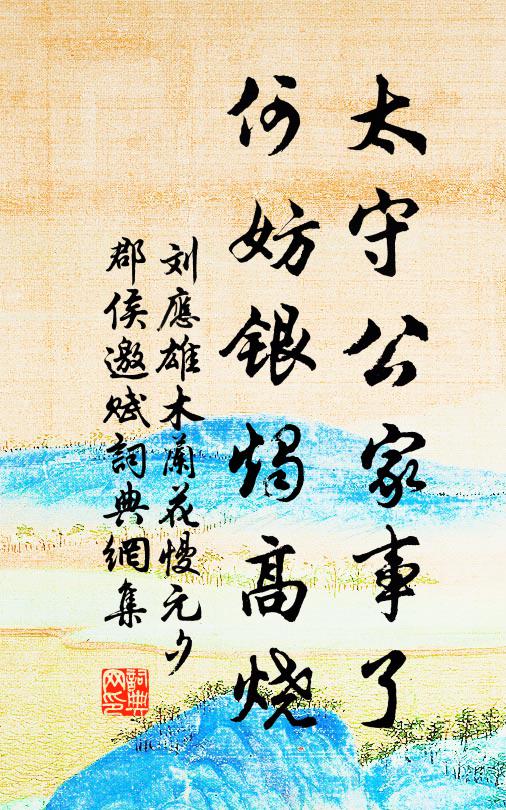 太守公家事了
何妨银烛高烧
刘應雄木蘭花慢元夕
郡侯邀赋詞典網集
詞典网印